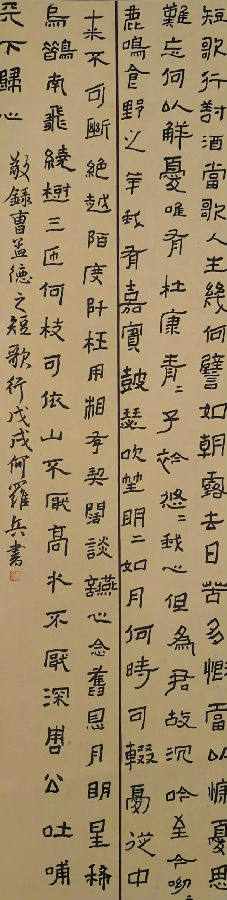 短歌行對酒當歌人生幾何譬如朝露去日苦多慨當以慷憂思
難忘何以解憂唯有杜康青〻子衿悠〻我心但為君故沉吟至今呦〻
鹿鳴食野之苹我有嘉賓鼓瑟吹笙明〻如月何時可輟憂從中
來不可斷絕越陌度阡枉用相存契闊談讌心念舊恩月明星稀
烏鵲南飛繞樹三匝何枝可依山不厭高水不厭深周公吐哺
天下歸心
敬錄曹孟德之短歌行戊戌何羅兵書